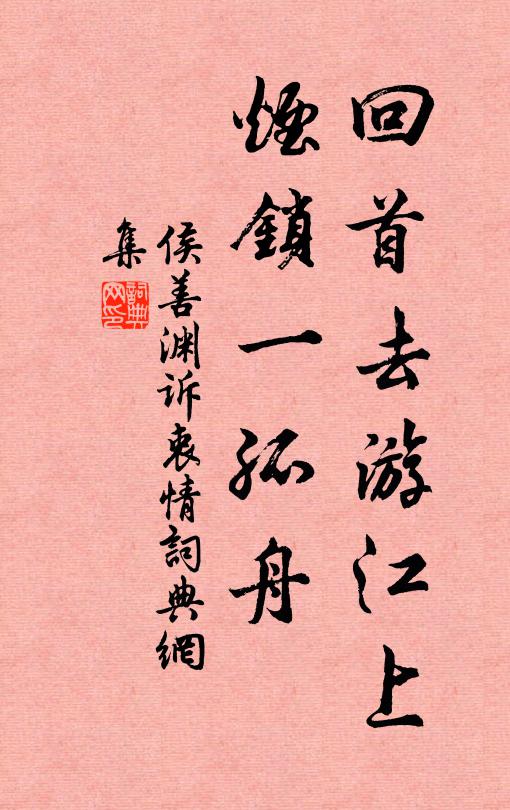 回首去游江上
煙鎖一孤舟
侯善渊诉衷情詞典網
集
詞典网印